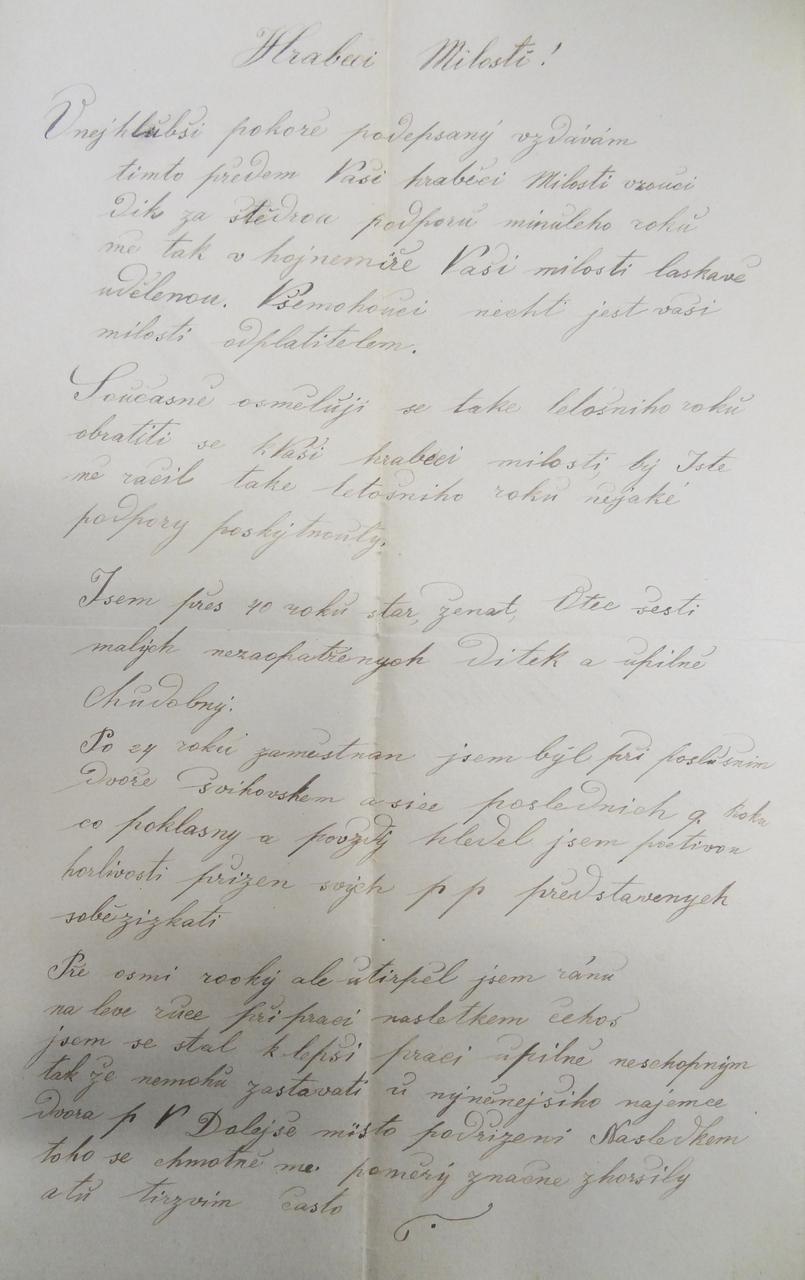 Hraběci Milosti!
Vnejhlubši pokoře podepsaný vzdávám
timto předem Vaši hraběci Milosti vrouci
dik za štědrou podporu minuleho roku
mě tak v hojnemiře Vaši milosti laskavě
udělenou. Všemohouci nechť jest vaši
milosti odplatitelem.
Současně osmělůji se take letošniho roků
obratiti se kVaši hraběci milosti, by Jste
mě račil take letošniho roků nějaké
podpory poskýtnoutý.
Jsem přes 40 roků star, ženat, Otec šesti
malých nezaopatřených ditek a upilně
chudobný.
Po 24 roků zaměstnan jsem býl při poslušnim
dvoře Švihovskem a sice poslednich 9 roku
co poklasny a povzdý hleděl jsem poctivou
horlivosti přizen svých p p představenych
soběziskati
Pře osmi rooký ale utirpěl jsem ránu
na leve ruce připraci nasletkem čehos
jsem se stal k lepši praci upilně neschopným
tak že nemohu zastavati u nýnenejšiho najemce
dvora p V Dolejše misto podřizeni Nasledkem
toho se hmotně me poměrý značne zhoršily
atu tirzvim často